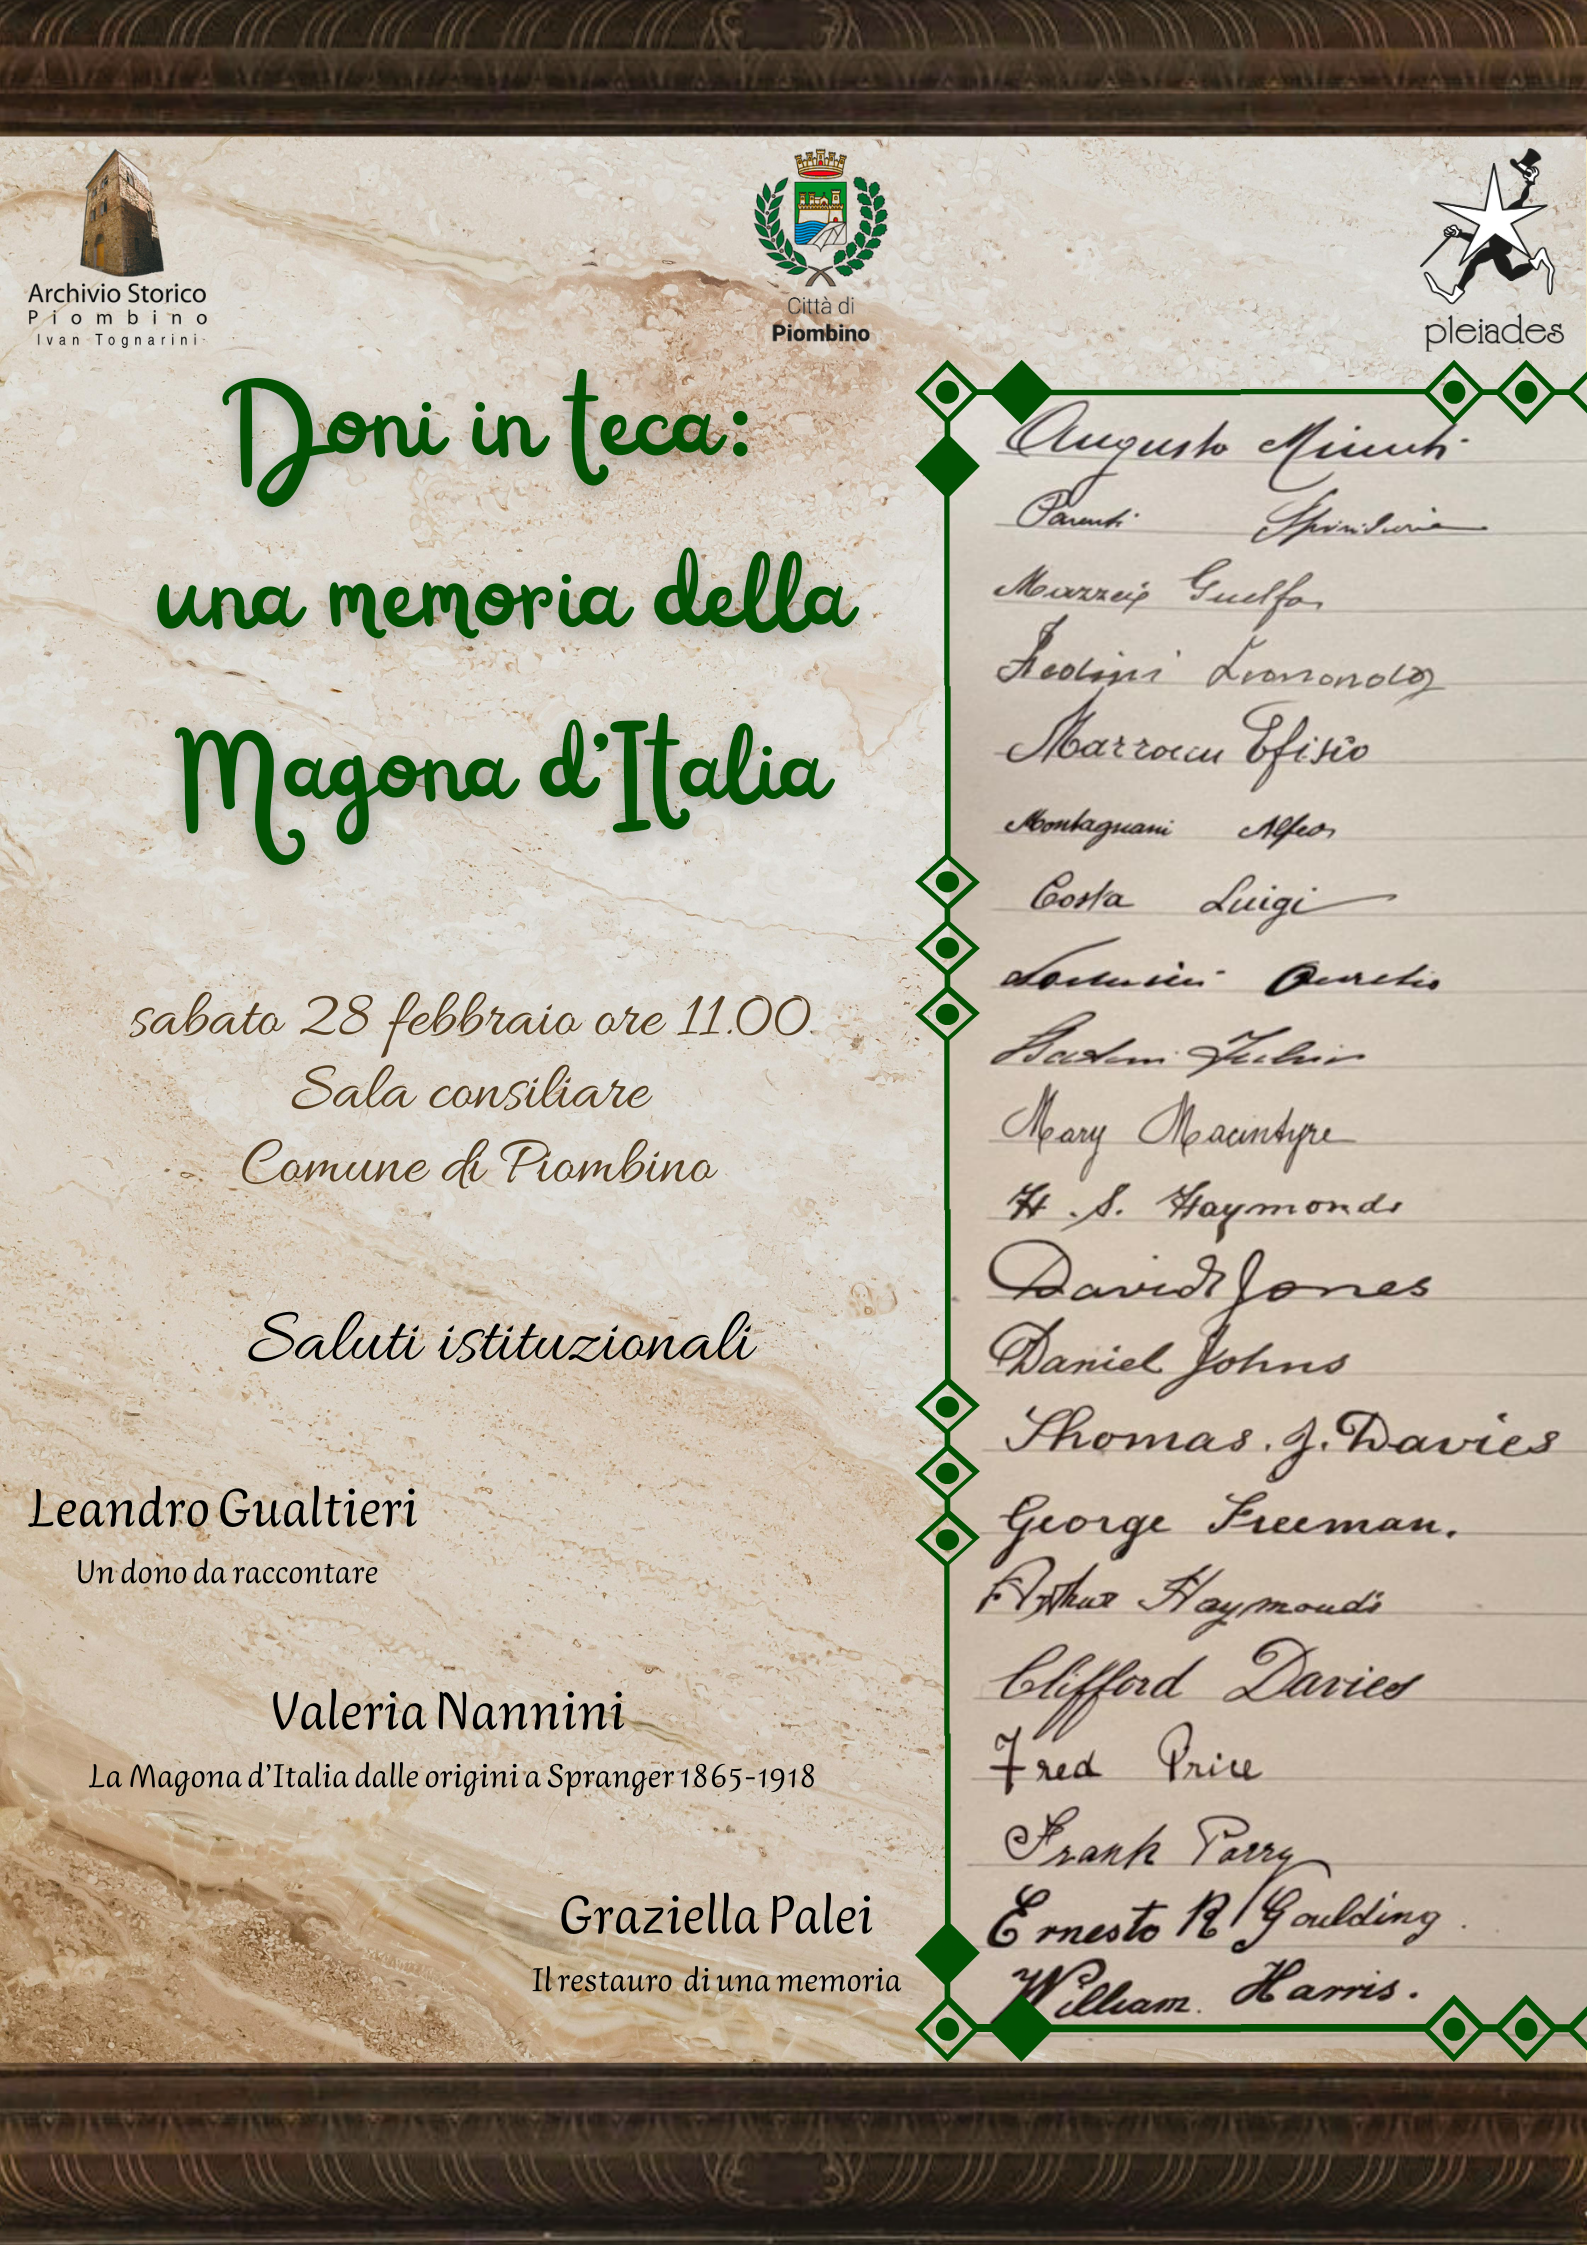 Archivio Storico
Piombino
Ivan Tognarini
Città di
Piombino
pleiades
Doni in teca:
una memoria della
Magona d'Italia
sabato 28 febbraio ore 11.00
Sala consiliare
Comune di Piombino
Saluti istituzionali
Leandro Gualtieri
Un dono da raccontare
Valeria Nannini
La Magona d'Italia dalle origini a Spranger 1865-1918
Graziella Palei
Il restauro di una memoria
Augusto
Parenti
Guelfo
Efisio
Montagnani Alfeo
Costa Luigi
Aurelio
Mary Macintyre
H. S. Haymonds
David Jones
Daniel Johns
Thomas. J. Davies
George Freeman.
Arthur Haymonds
Clifford Davies
Fred Price
Frank Parry
Ernesto R Goulding
William Harris.